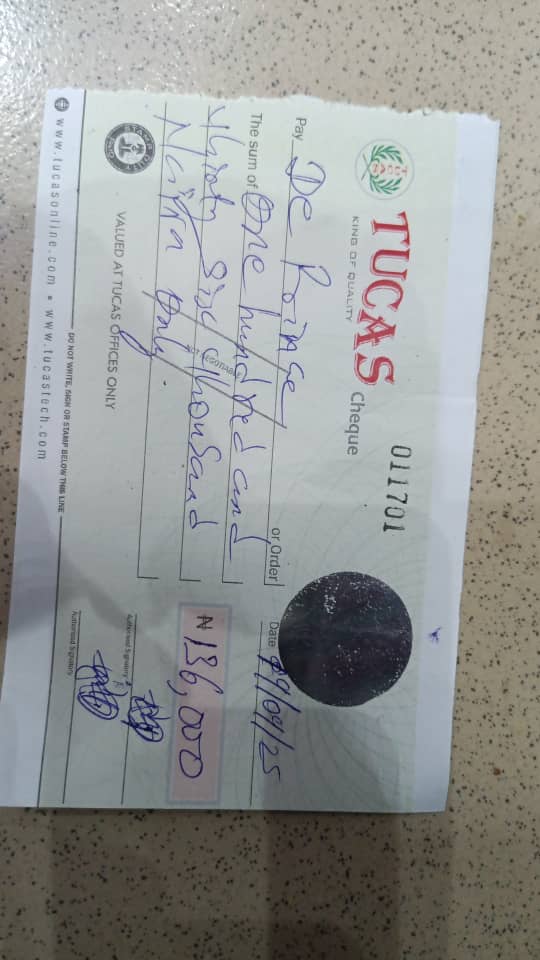 TUCAS Cheque
KING OF QUALITY
011701
Date 09/09/25
Pay De Prince or Order
The sum of One hundred and
thirty Six thousand
Naira Only.
NOT NEGOTIABLE
₦ 136,000
STAMP DUTY
VALUED AT TUCAS OFFICES ONLY
Authorised Signatory
Authorised Signatory
DO NOT WRITE, SIGN OR STAMP BELOW THIS LINE
www.tucasonline.com • www.tucastech.com